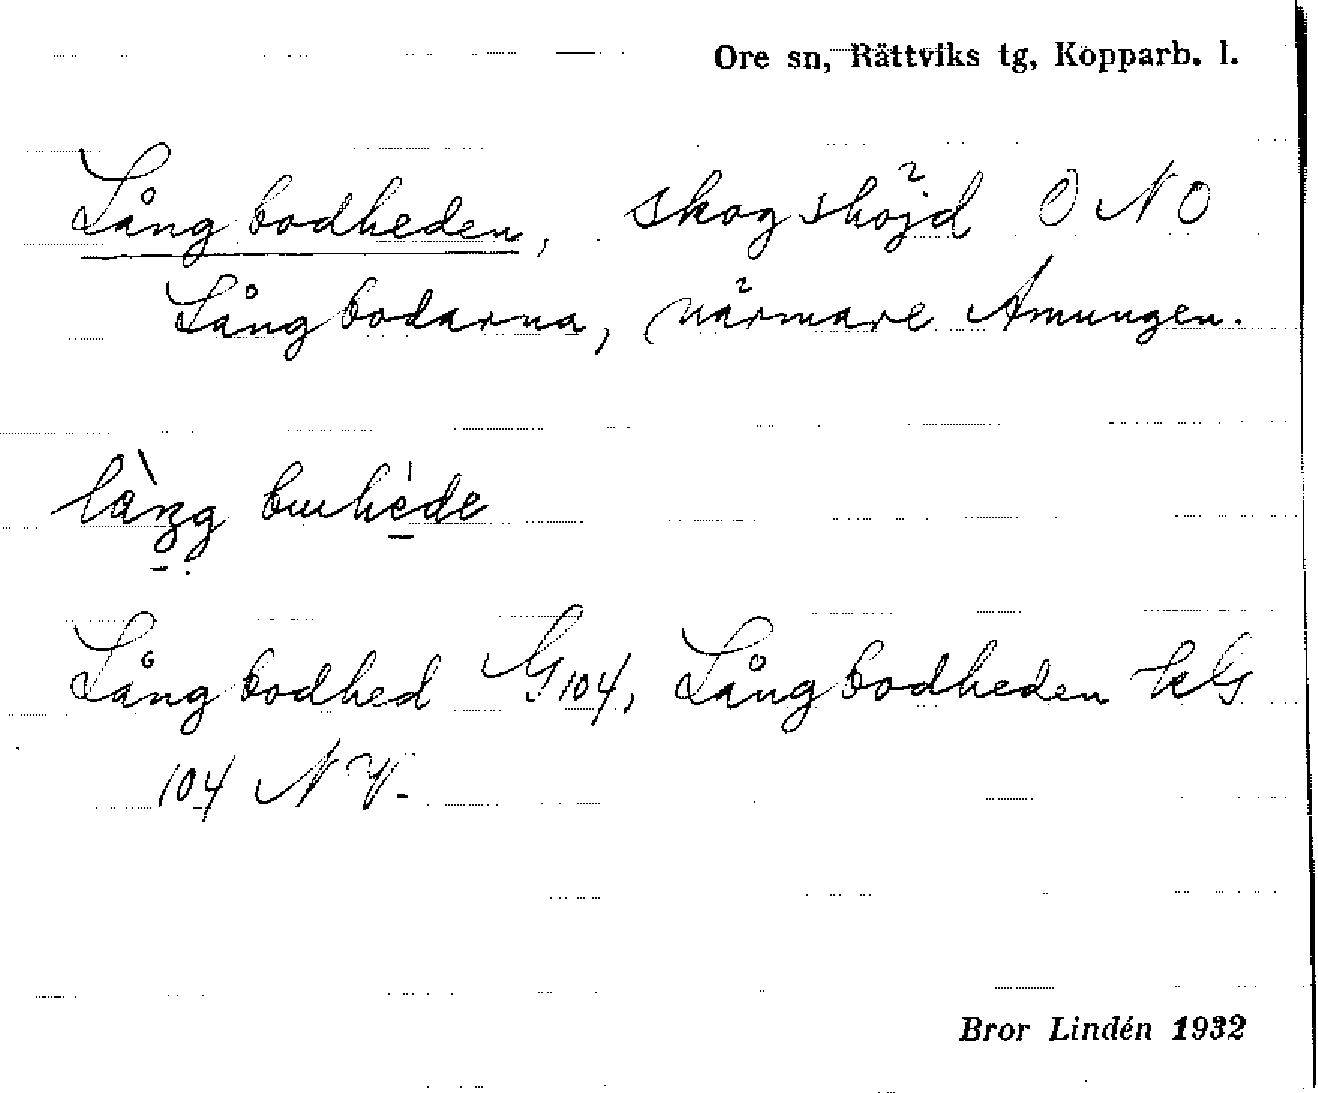 Ore sn, Rättviks tg, Kopparb. l.
Långbodheden, skogshöjd ONO
Långbodarna, närmare Amungen.
Långbodhed G104, Långbodheden kG
104 NV.
Bror Lindén 1932